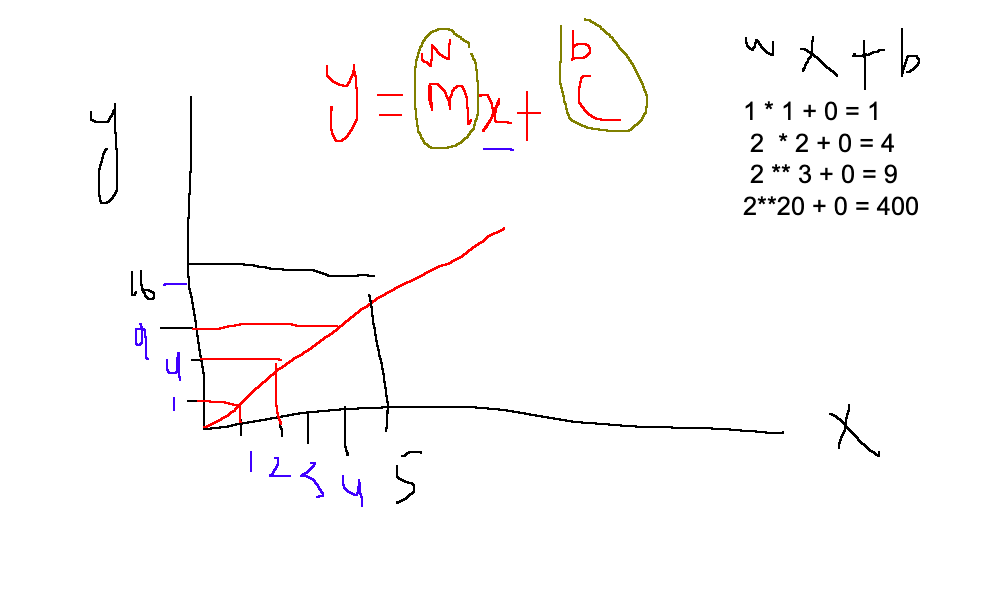 w b
y = mx + c
w x + b
1 * 1 + 0 = 1
2 * 2 + 0 = 4
2 ** 3 + 0 = 9
2**20 + 0 = 400
y
16
9
4
1
x
1 2 3 4 5